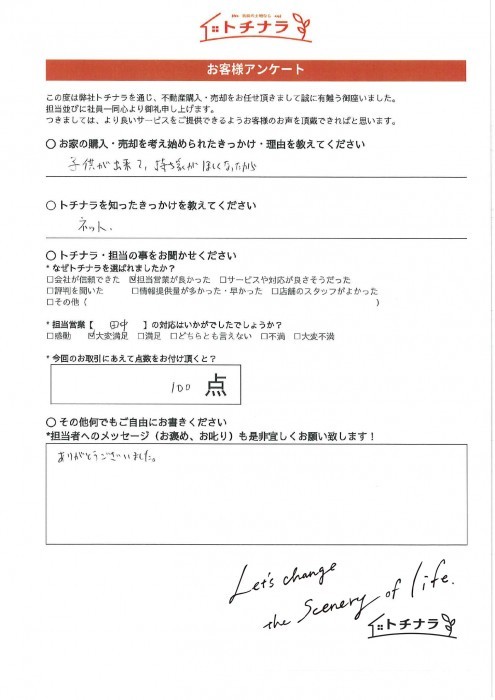 トチナラ
お客様アンケート
この度は弊社トチナラを通じ、不動産購入・売却をお任せ頂きまして誠に有難う御座いました。
担当並びに社員一同心より御礼申し上げます。
つきましては、より良いサービスをご提供できるようお客様のお声を頂戴できればと思います。
〇 お家の購入・売却を考え始められたきっかけ・理由を教えてください
子供が出来て、持ち家がほしくなったから
〇 トチナラを知ったきっかけを教えてください
ネット.
〇 トチナラ・担当の事をお聞かせください
* なぜトチナラを選ばれましたか？
□会社が信頼できた ☑担当営業が良かった □サービスや対応が良さそうだった
□評判を聞いた □情報提供量が多かった・早かった □店舗のスタッフがよかった
□その他（ ）
* 担当営業【 田中 】の対応はいかがでしたでしょうか？
□感動 ☑大変満足 □満足 □どちらとも言えない □不満 □大変不満
* 今回のお取引にあえて点数をお付け頂くと？
100 点
〇 その他何でもご自由にお書きください
*担当者へのメッセージ（お褒め、お叱り）も是非宜しくお願い致します！
ありがとうございました。
Let's change
the Scenery of life.
トチナラ